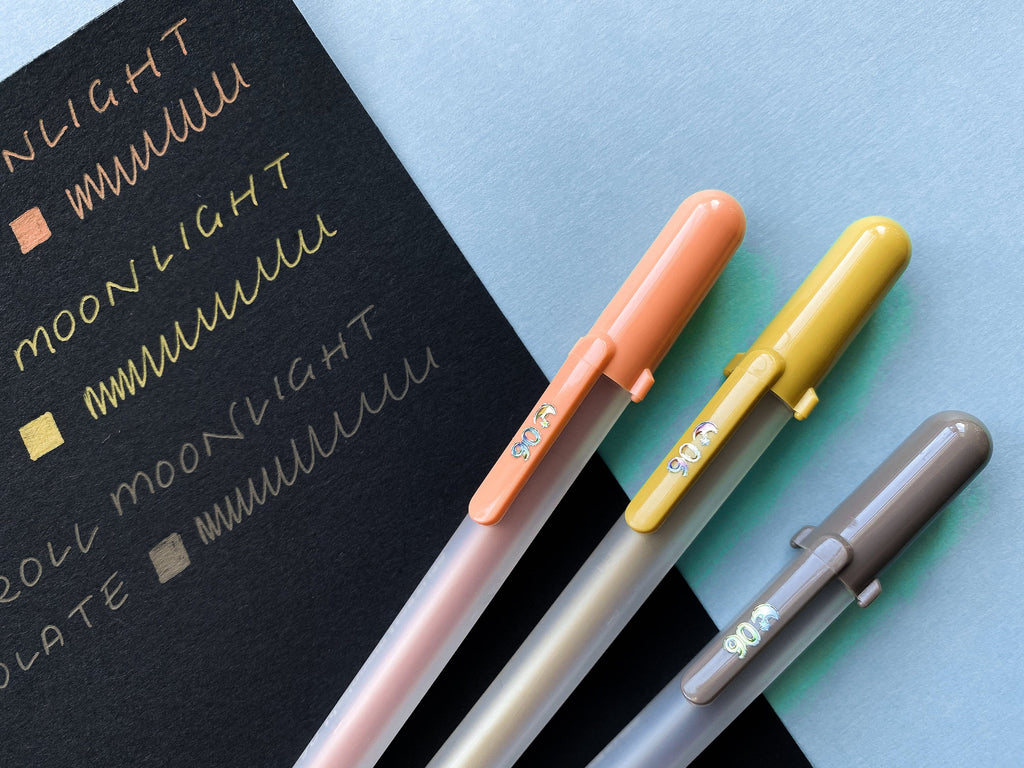 NLIGHT
MOONLIGHT
ROLL MOONLIGHT
OLATE
06
06
06